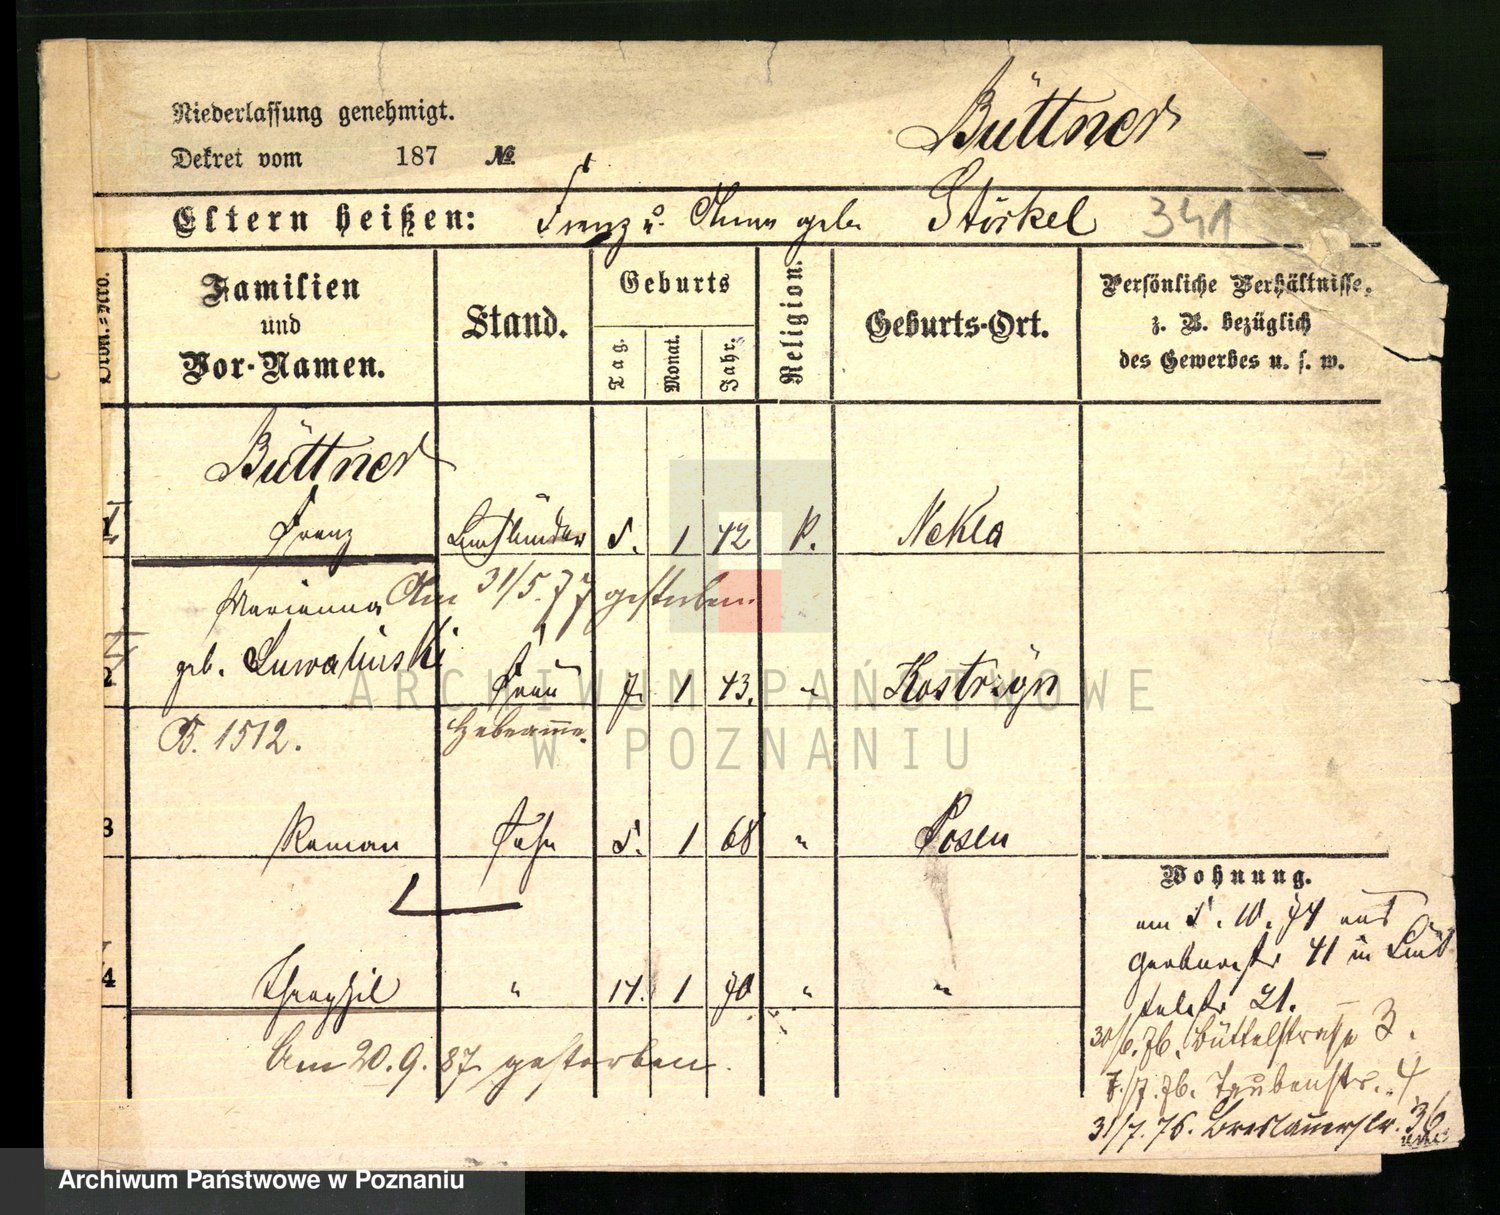 Niederlassung genehmigt.
Dekret vom 187 №
Büttner
Eltern heißen: Franz u. Anna geb. Störkel 341
Ordn.-Nro.
Familien und Vor-Namen.
Stand.
Geburts
Tag.
Monat.
Jahr.
Religion.
Geburts-Ort.
Persönliche Verhältnisse,
z. B. bezüglich
des Gewerbes u. s. w.
Büttner
1 Franz 5. 1 42 k. Nekla
Am 31/5. 77 gestorben.
Marianna
2 geb. Frau 7. 1 43. " Kostrzyn
B. 1512. Hebamme.
3 Roman Sohn 5. 1 68 " Posen
4 Theophil " 14. 1 70 " "
Am 20. 9. 87 gestorben.
Wohnung.
am 5. 10. 74 aus
Gerberstr 41 in
21.
30/6. 76. Büttelstraße 3.
7/7. 76. Taubenstr. 4
31/7. 76. Breslauerstr. 36
ARCHIWUM PAŃSTWOWE
W POZNANIU
Archiwum Państwowe w Poznaniu